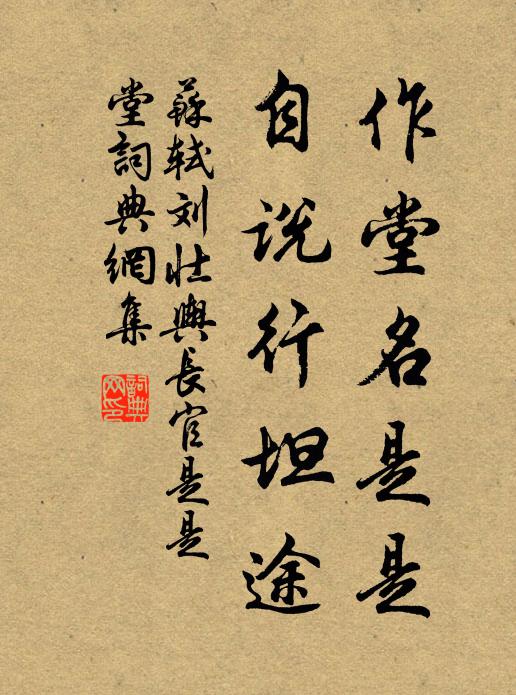 作堂名是是
自说行坦途
蘇軾刘壮輿長官是是
堂詞典網集
詞典
网印